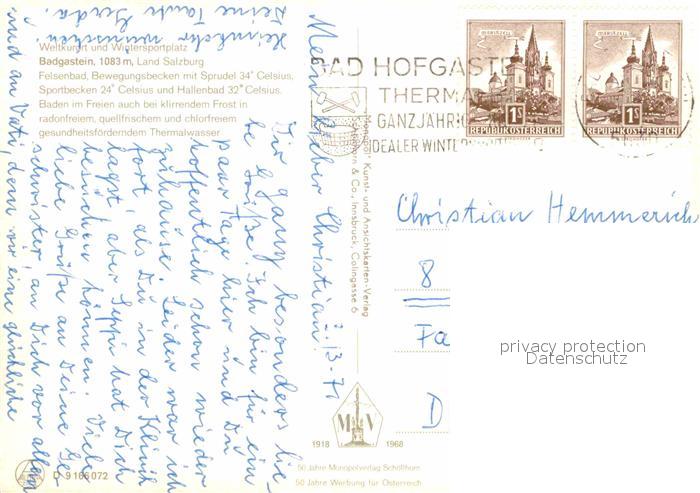 Weltkurort und Wintersportplatz
Badgastein, 1083 m, Land Salzburg
Felsenbad, Bewegungsbecken mit Sprudel 34° Celsius,
Sportbecken 24° Celsius und Hallenbad 32° Celsius,
Baden im Freien auch bei klirrendem Frost in
radonfreiem, quellfrischem und chlorfreiem
gesundheitsförderndem Thermalwasser
BAD HOFGASTEIN
THERMAL
GANZJÄHRIG
IDEALER WINTER
MARIAZELL
1 S
REPUBLIK ÖSTERREICH
MARIAZELL
1 S
REPUBLIK ÖSTERREICH
2.3.71
Mein lieber Christian!
Dir ganz besonders lie-
be Grüße! Ich bin für ein
paar Tage hier und Du
hoffentlich schon wieder
zuhause. Leider war ich
fort, als Du in der Klinik
lagst, aber Seppi hat Dich
besuchen können. Viele
liebe Grüße an Deine Ge-
schwister, an Dich vor allem
und an Vati, dem wir eine glückliche
Heimkehr wünschen.
Deine Tante Gerda.
"Monopol" Kunst- und Ansichtskarten-Verlag
Schöllhorn & Co., Innsbruck, Colingasse 6
Christian Hemmerich
8
Fa
D
privacy protection
Datenschutz
M V
1918 1968
50 Jahre Monopolverlag Schöllhorn
50 Jahre Werbung für Österreich
D 9166072